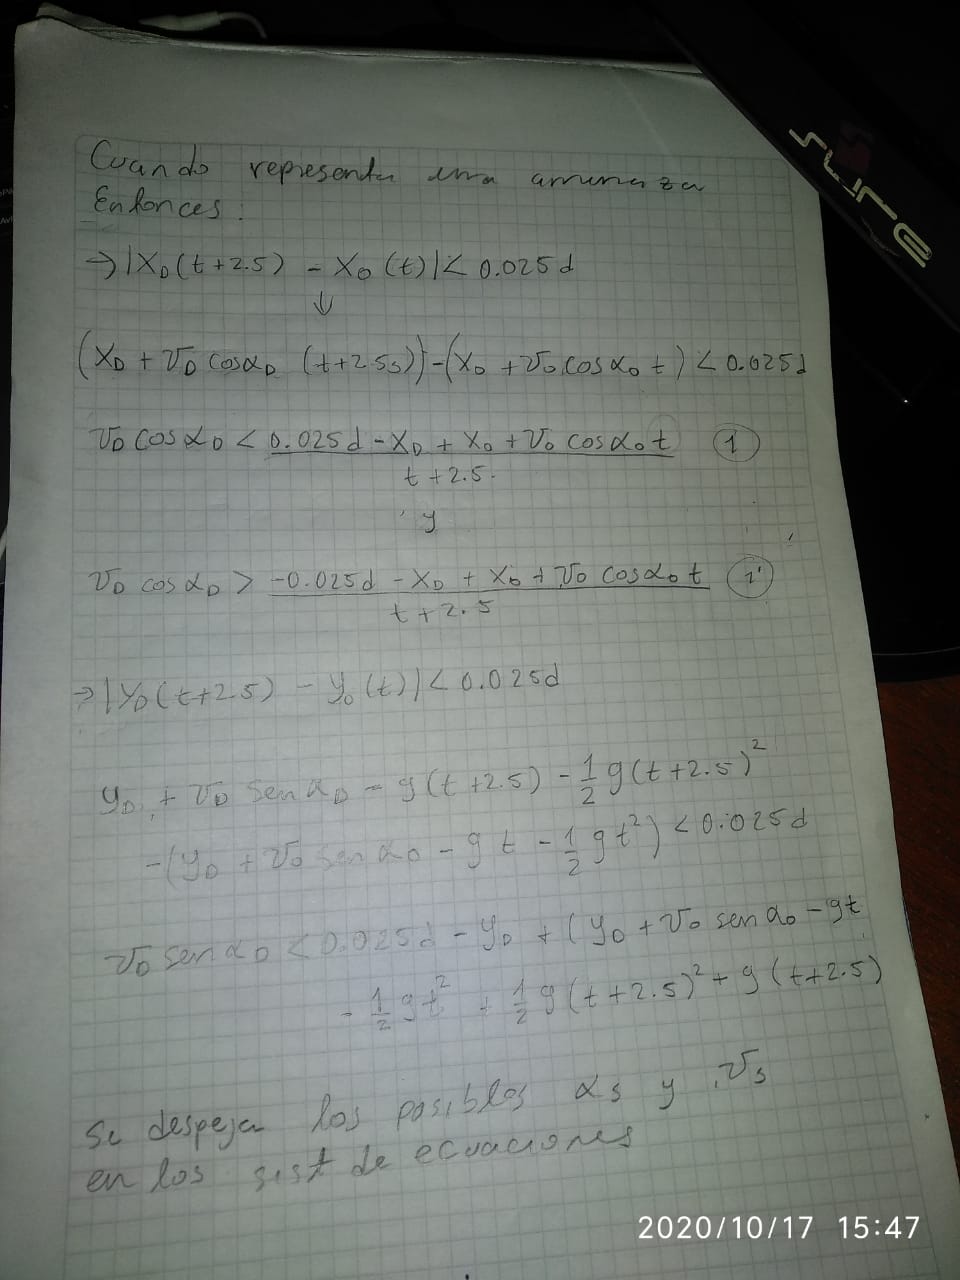 Cuando representa una amenaza
Entonces:
→ |X_D(t+2.5) - X_0(t)| < 0.025d
↓
(X_D + V_D cosα_D (t+2.5s)) - (X_0 + V_0 cosα_0 t) < 0.025d
V_D cosα_D < (0.025d - X_D + X_0 + V_0 cosα_0 t) / (t+2.5) (1)
y
V_D cosα_D > (-0.025d - X_D + X_0 + V_0 cosα_0 t) / (t+2.5) (1')
→ |Y_D(t+2.5) - Y_0(t)| < 0.025d
Y_D + V_D senα_D - g(t+2.5) - 1/2 g(t+2.5)²
-(Y_0 + V_0 senα_0 - gt - 1/2 gt²) < 0.025d
V_D senα_D < 0.025d - Y_D + (Y_0 + V_0 senα_0 - gt
- 1/2 gt² + 1/2 g(t+2.5)² + g(t+2.5)
Se despejan los posibles αs y Vs
en los sist de ecuaciones
SURE
2020/10/17 15:47